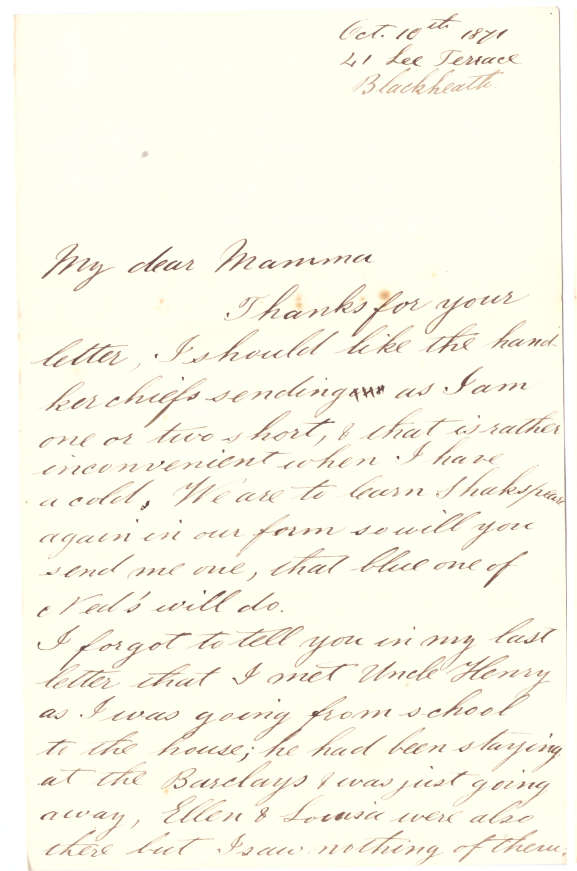 Oct. 10th 1871
41 Lee Terrace
Blackheath.
My dear Mamma
Thanks for your
letter, I should like the hand-
kerchiefs sending as I am
one or two short, & that is rather
inconvenient when I have
a cold. We are to learn Shakspeare
again in our form so will you
send me one, that blue one of
Ned's will do.
I forgot to tell you in my last
letter that I met Uncle Henry
as I was going from school
to the house; he had been staying
at the Barclays & was just going
away, Ellen & Louisa were also
there but I saw nothing of them.